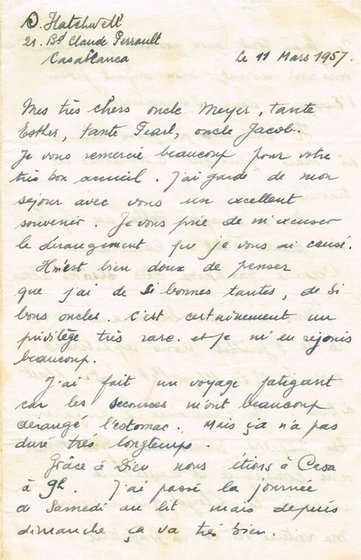 D. Hatchwell
21. Bd Claude Perrault
Casablanca
Le 11 Mars 1957.
Mes très chers oncle Meyer, tante
Esther, tante Pearl, oncle Jacob.
Je vous remercie beaucoup pour votre
très bon accueil. J'ai gardé de mon
séjour avec vous un excellent
souvenir. Je vous prie de m'excuser
le dérangement que je vous ai causé.
Il m'est bien doux de penser
que j'ai de si bonnes tantes, de si
bons oncles. C'est certainement un
privilège très rare. et je m'en réjouis
beaucoup.
J'ai fait un voyage fatigant
car les secousses m'ont beaucoup
dérangé l'estomac. Mais ça n'a pas
duré très longtemps.
Grâce à Dieu nous étions à Casa
à 9h. J'ai passé la journée
de Samedi au lit mais depuis
dimanche ça va très bien